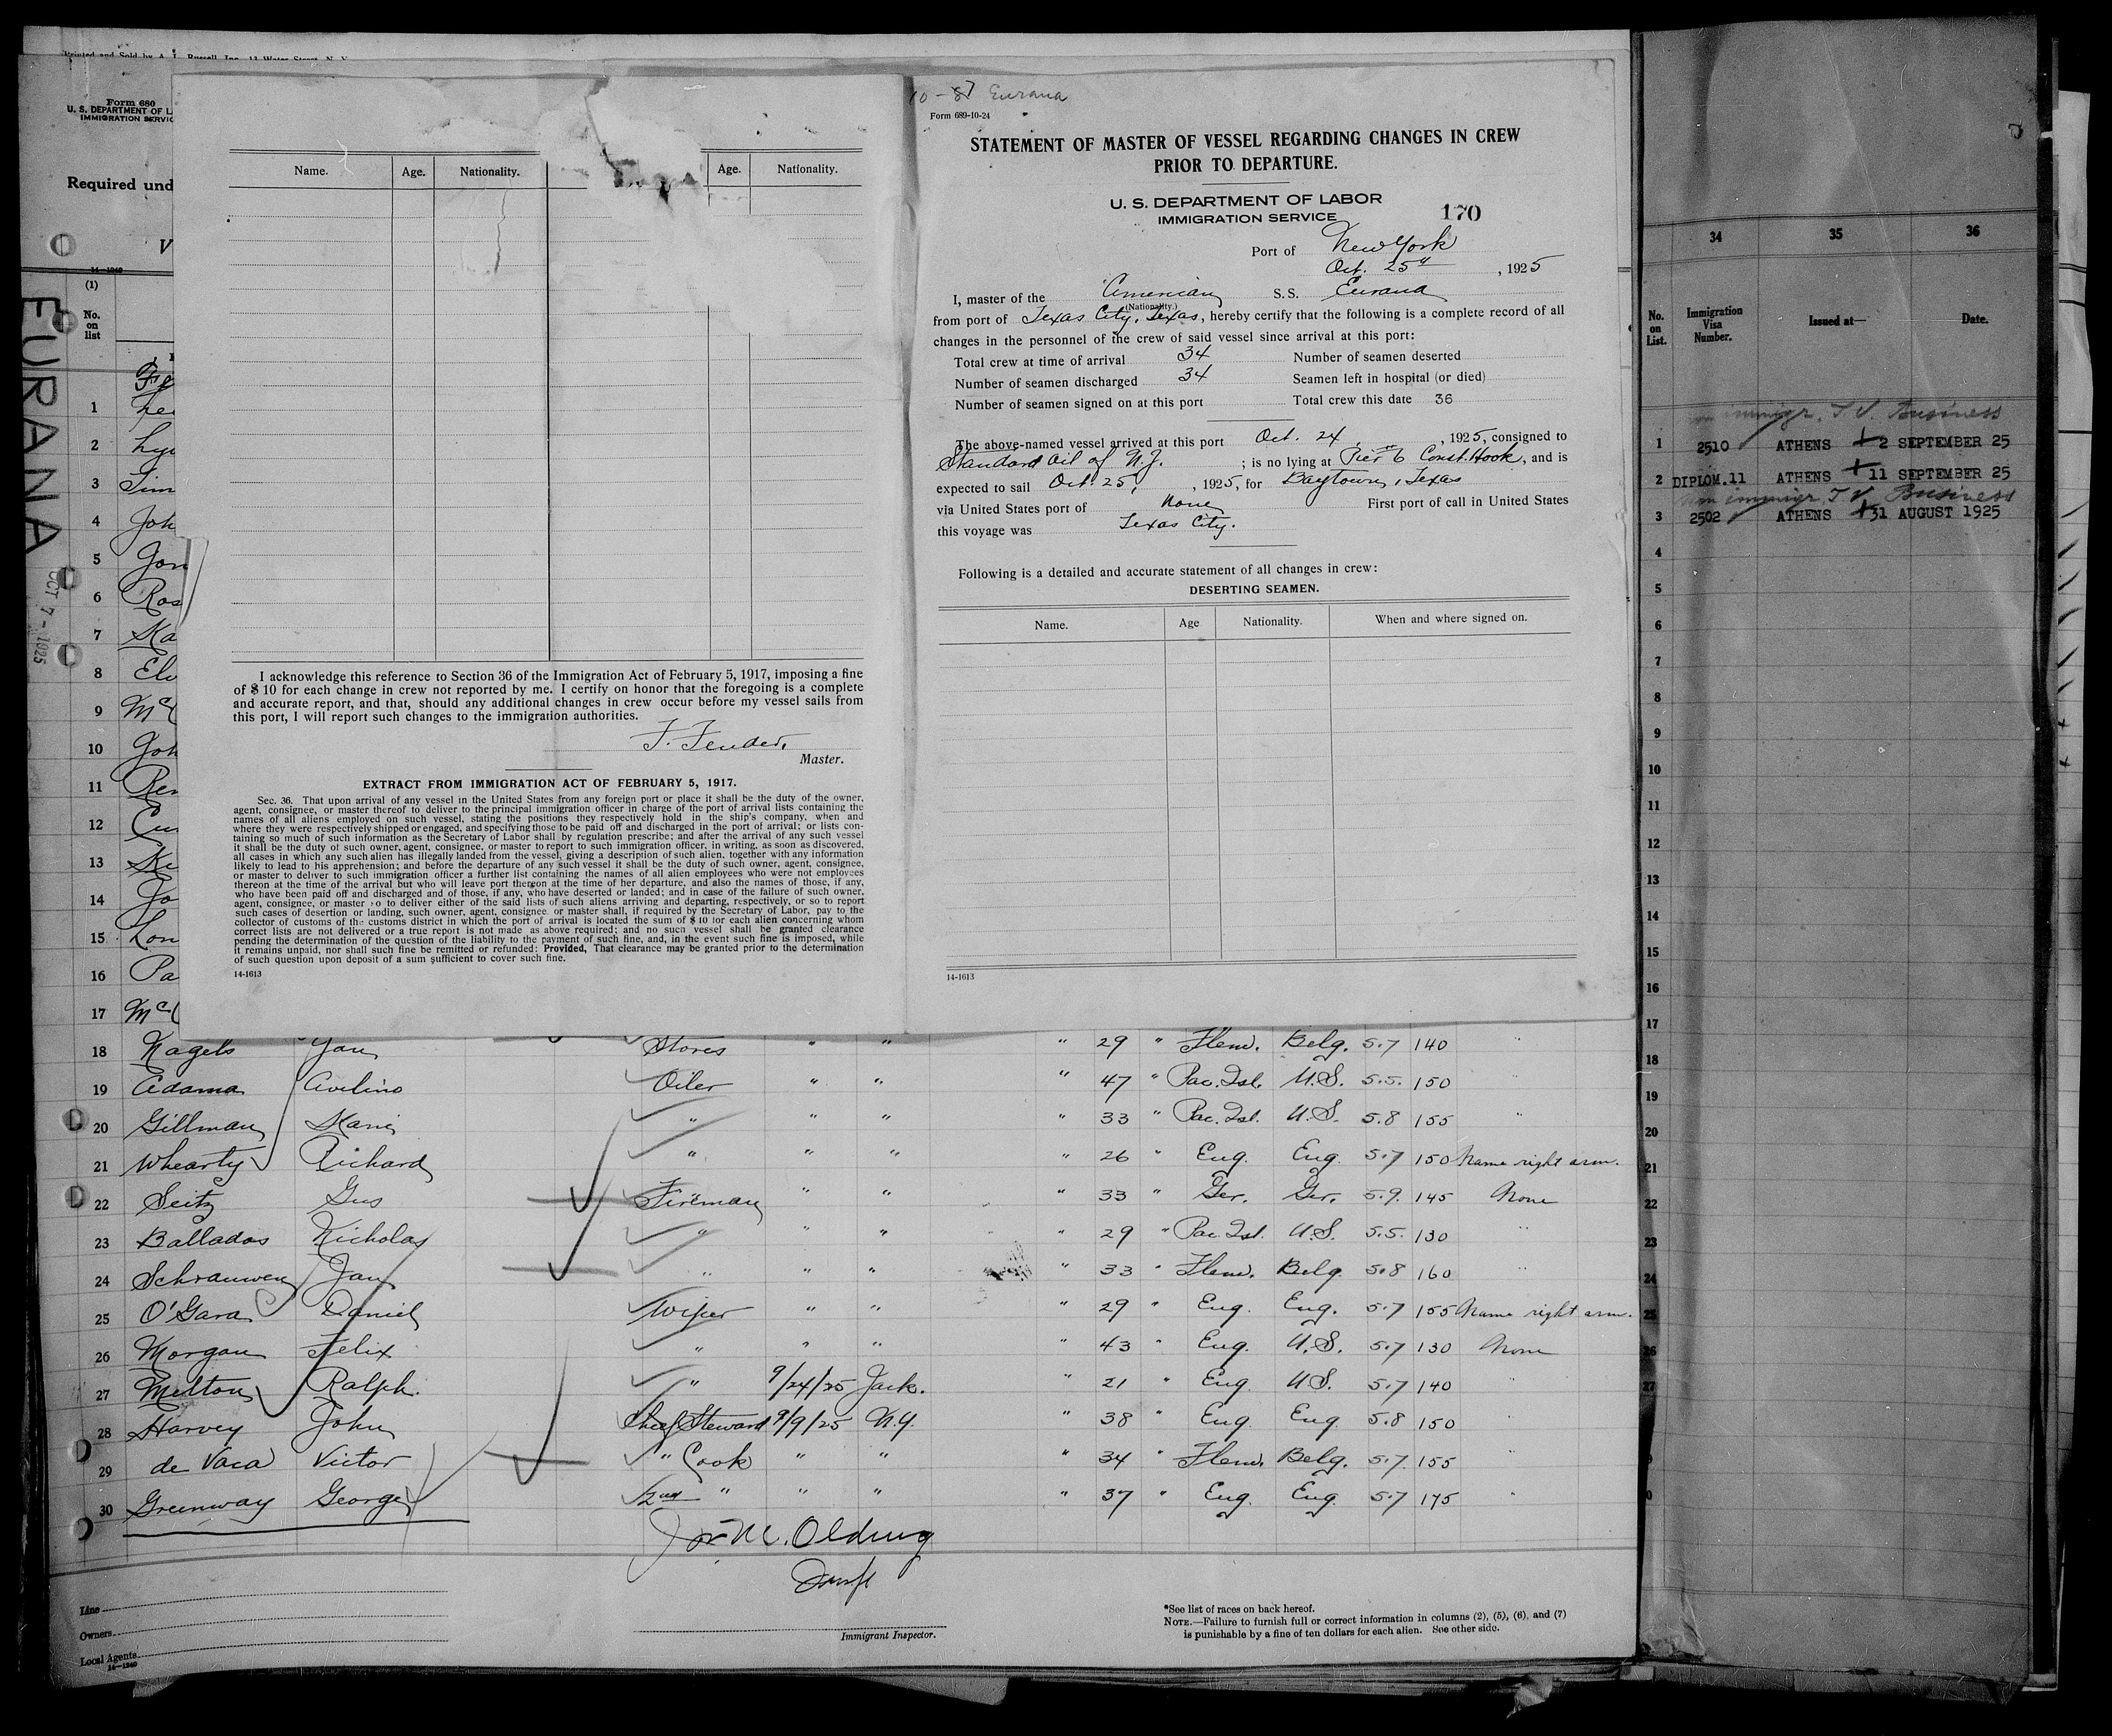 Form 680
U. S. DEPARTMENT OF L
IMMIGRATION SERVIC
Required und
V
14-1240
(1)
No. on list
EURANA
OCT 7 - 1925
1
2 Lyn
3 Sim
4 Joh
5 Jon
6 Ros
7 Ka
8 Elv
9 Mc
10 Joh
11 Ren
12
13
14 Jo
15 Lon
16 Pa
17 Mc
Name. Age. Nationality. Age. Nationality.
I acknowledge this reference to Section 36 of the Immigration Act of February 5, 1917, imposing a fine
of $10 for each change in crew not reported by me. I certify on honor that the foregoing is a complete
and accurate report, and that, should any additional changes in crew occur before my vessel sails from
this port, I will report such changes to the immigration authorities.
F. Fender.
Master.
EXTRACT FROM IMMIGRATION ACT OF FEBRUARY 5, 1917.
Sec. 36. That upon arrival of any vessel in the United States from any foreign port or place it shall be the duty of the owner,
agent, consignee, or master thereof to deliver to the principal immigration officer in charge of the port of arrival lists containing the
names of all aliens employed on such vessel, stating the positions they respectively hold in the ship's company, when and
where they were respectively shipped or engaged, and specifying those to be paid off and discharged in the port of arrival; or lists con-
taining so much of such information as the Secretary of Labor shall by regulation prescribe; and after the arrival of any such vessel
it shall be the duty of such owner, agent, consignee, or master to report to such immigration officer, in writing, as soon as discovered,
all cases in which any such alien has illegally landed from the vessel, giving a description of such alien, together with any information
likely to lead to his apprehension; and before the departure of any such vessel it shall be the duty of such owner, agent, consignee,
or master to deliver to such immigration officer a further list containing the names of all alien employees who were not employees
thereon at the time of the arrival but who will leave port thereon at the time of her departure, and also the names of those, if any,
who have been paid off and discharged and of those, if any, who have deserted or landed; and in case of the failure of such owner,
agent, consignee, or master so to deliver either of the said lists of such aliens arriving and departing, respectively, or so to report
such cases of desertion or landing, such owner, agent, consignee or master shall, if required by the Secretary of Labor, pay to the
collector of customs of the customs district in which the port of arrival is located the sum of $10 for each alien concerning whom
correct lists are not delivered or a true report is not made as above required; and no such vessel shall be granted clearance
pending the determination of the question of the liability to the payment of such fine, and, in the event such fine is imposed, while
it remains unpaid, nor shall such fine be remitted or refunded: Provided, That clearance may be granted prior to the determination
of such question upon deposit of a sum sufficient to cover such fine.
14-1613
10-87 Eurana
Form 689-10-24
STATEMENT OF MASTER OF VESSEL REGARDING CHANGES IN CREW
PRIOR TO DEPARTURE.
U. S. DEPARTMENT OF LABOR
IMMIGRATION SERVICE
170
Port of New York
Oct. 25th, 1925
I, master of the American S. S. Eurana
(Nationality.)
from port of Texas City, Texas, hereby certify that the following is a complete record of all
changes in the personnel of the crew of said vessel since arrival at this port:
Total crew at time of arrival 34 Number of seamen deserted
Number of seamen discharged 34 Seamen left in hospital (or died)
Number of seamen signed on at this port Total crew this date 36
The above-named vessel arrived at this port Oct. 24, 1925, consigned to
Standard Oil of N.J. ; is no lying at Pier 6 Const. Hook, and is
expected to sail Oct. 25, 1925, for Baytown, Texas
via United States port of None First port of call in United States
this voyage was Texas City.
Following is a detailed and accurate statement of all changes in crew:
DESERTING SEAMEN.
Name. Age Nationality. When and where signed on.
14-1613
18 Nagels Jan Stores " " " 29 " Flem. Belg. 5.7 140 "
19 Adama Avelino Oiler " " " 47 " Pac. Isl. U.S. 5.5. 150
20 Gillman " " " " 33 " Pac. Isl. U.S. 5.8 155 "
21 Whearty Richard " " " " 26 " Eng. Eng. 5.7 150 Name right arm.
22 Seitz Gus Fireman " " " 33 " Ger. Ger. 5.9. 145 None
23 Ballados Nicholas " " " 29 " Pac. Isl. U.S. 5.5. 130 "
24 Schrauwen Jan " " " " 33 " Flem. Belg. 5.8 160 "
25 O'Gara Daniel Wiper " " " 29 " Eng. Eng. 5.7 155 Name right arm.
26 Morgan Felix " " " " 43 " Eng. U.S. 5.7 130 None
27 Melton Ralph. " 9/24/25 Jack. " 21 " Eng. U.S. 5.7 140 "
28 Harvey John Chief Steward 9/9/25 N.Y. " 38 " Eng. Eng. 5.8 150
29 de Vaca Victor " Cook " " " 34 " Flem. Belg. 5.7. 155 "
30 Greenway George 2nd " " " " 37 " Eng. Eng. 5.7 175 "
Line
Owners
Local Agents
14-1240
Immigrant Inspector.
*See list of races on back hereof.
NOTE.—Failure to furnish full or correct information in columns (2), (5), (6), and (7)
is punishable by a fine of ten dollars for each alien. See other side.
34 35 36
No. on List. Immigration Visa Number. Issued at— Date.
immigr. T.V. Business
1 2510 ATHENS 2 SEPTEMBER 25
2 DIPLOM.11 ATHENS 11 SEPTEMBER 25
non immigr. T.V. Business
3 2502 ATHENS 31 AUGUST 1925
4
5
6
7
8
9
10
11
12
13
14
15
16
17
18
19
20
21
22
23
24
25
26
27